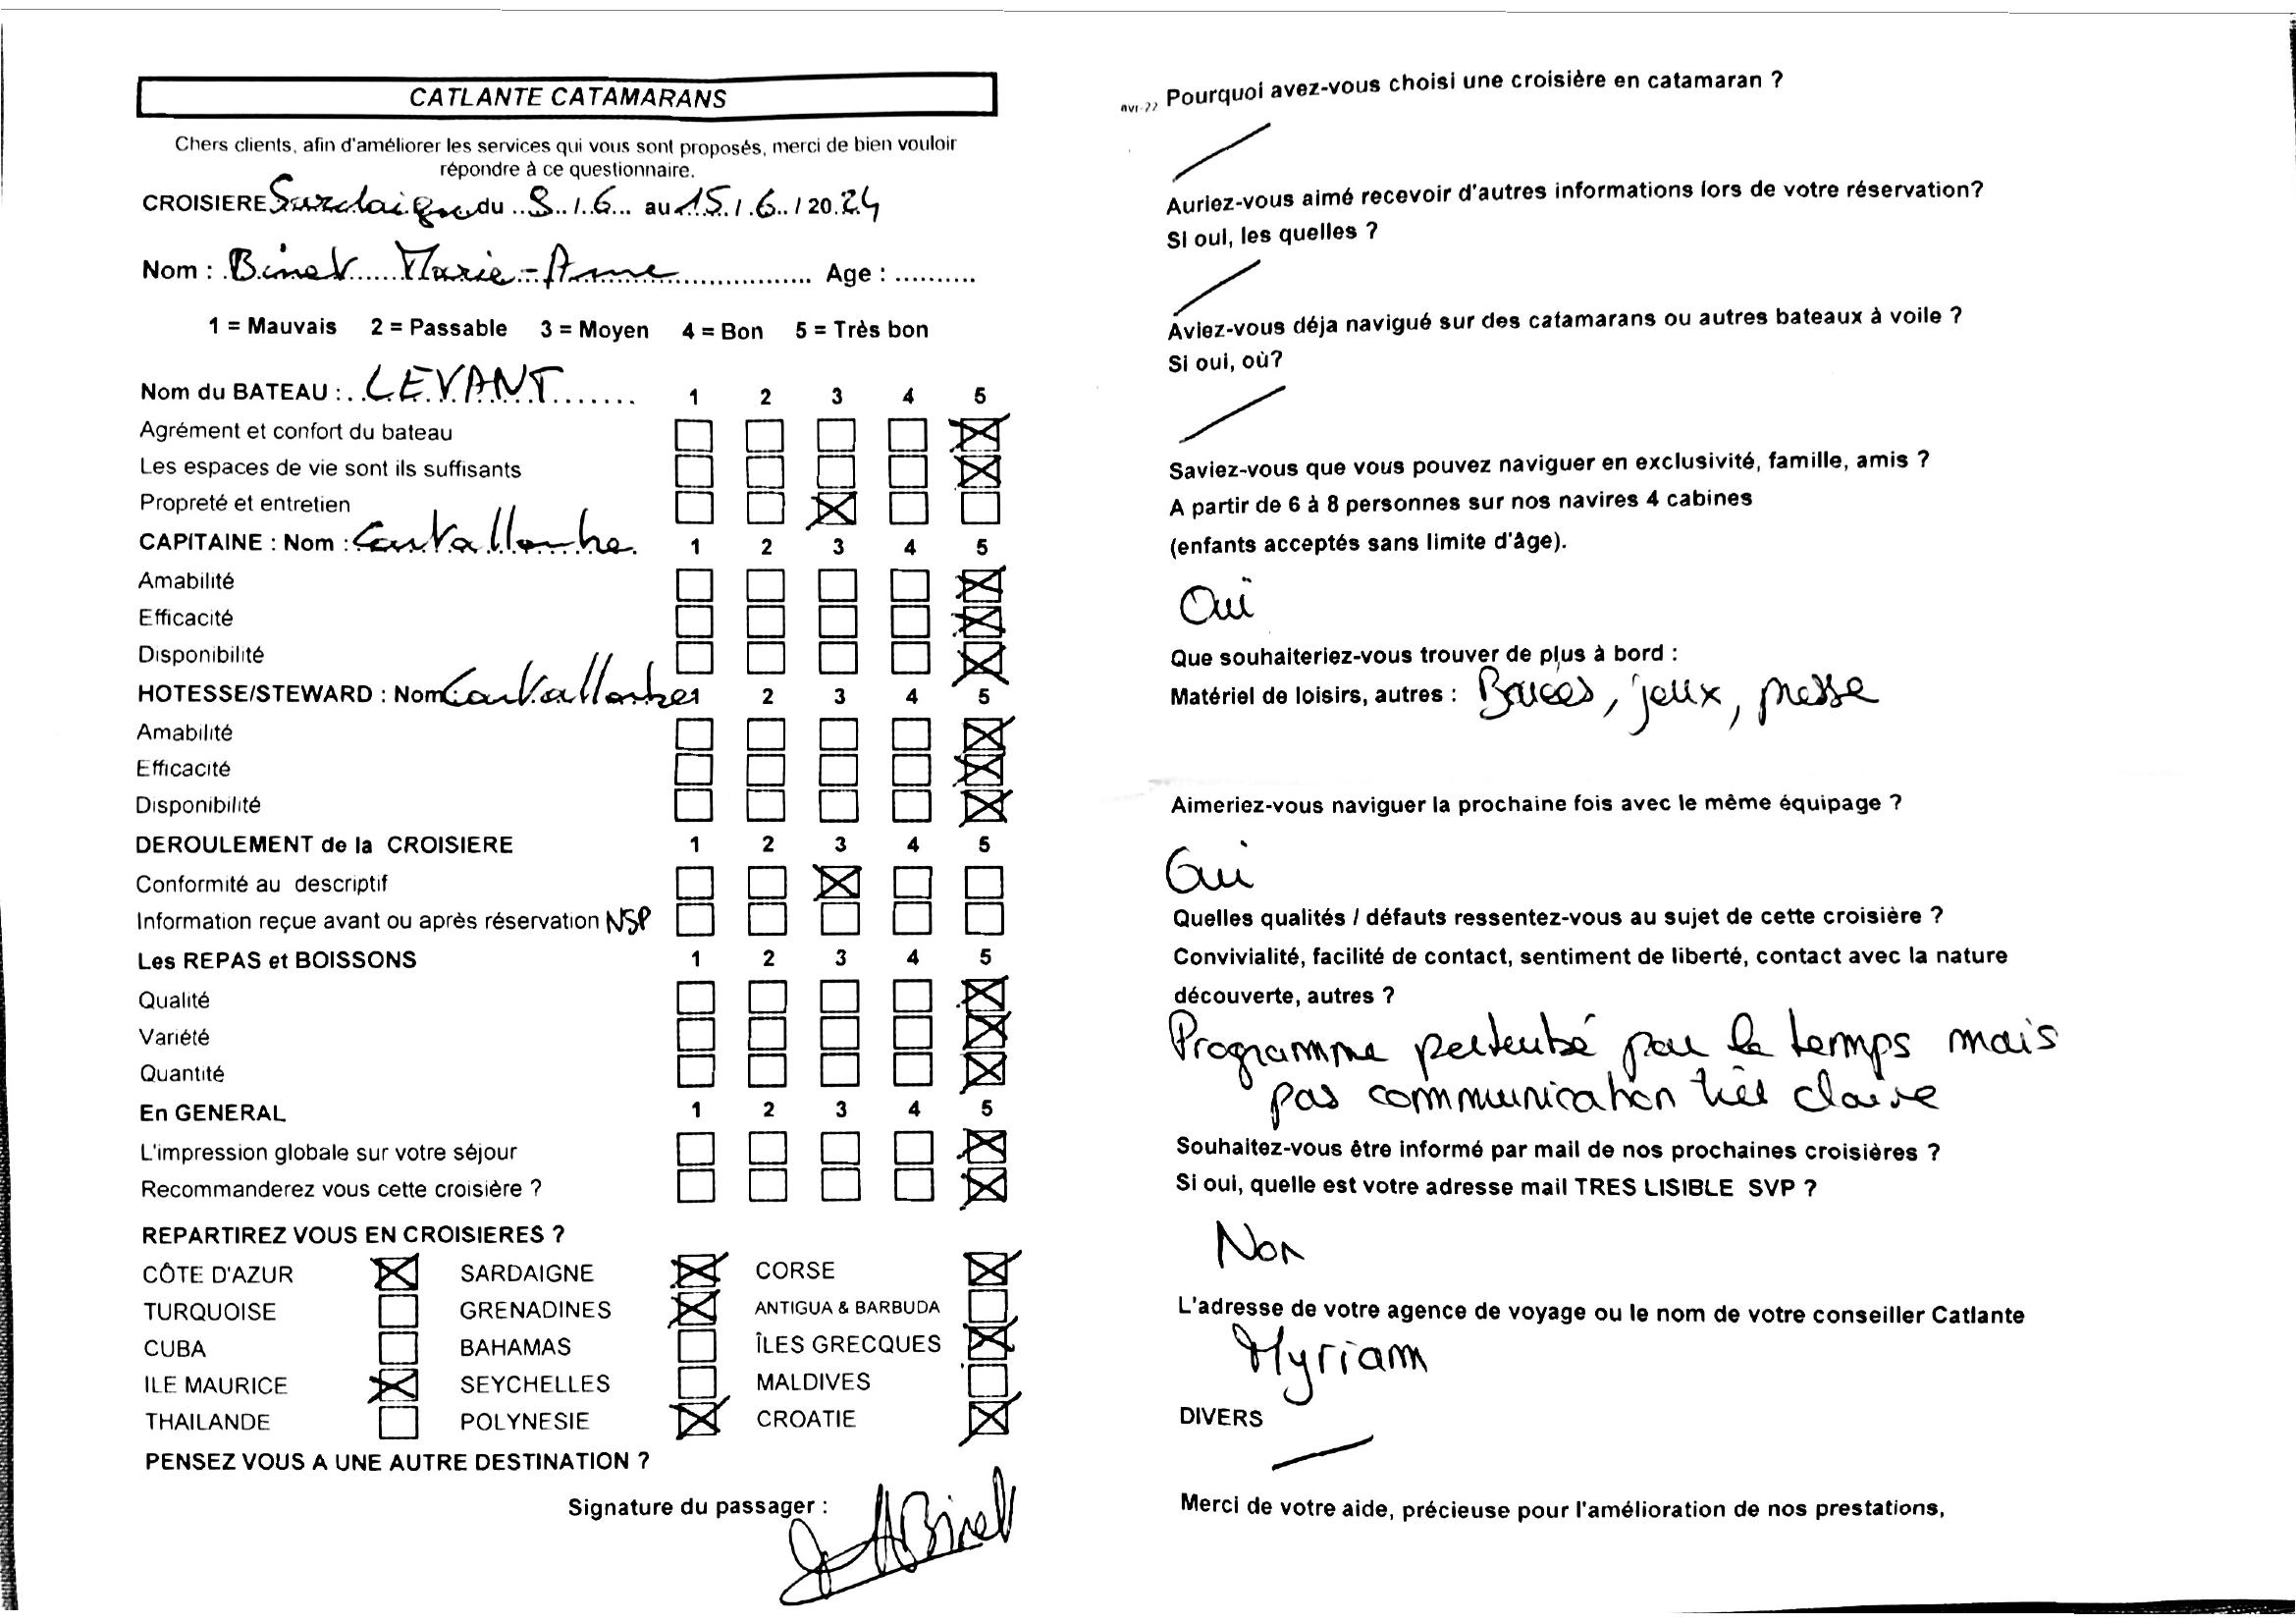 CATLANTE CATAMARANS
Chers clients, afin d'améliorer les services qui vous sont proposés, merci de bien vouloir
répondre à ce questionnaire.
CROISIERE du 8/6 au 15/6/2024
Nom : Binet Marie-Anne Age :
1 = Mauvais 2 = Passable 3 = Moyen 4 = Bon 5 = Très bon
Nom du BATEAU : LEVANT 1 2 3 4 5
Agrément et confort du bateau
Les espaces de vie sont ils suffisants
Propreté et entretien
CAPITAINE : Nom : 1 2 3 4 5
Amabilité
Efficacité
Disponibilité
HOTESSE/STEWARD : Nom 1 2 3 4 5
Amabilité
Efficacité
Disponibilité
DEROULEMENT de la CROISIERE 1 2 3 4 5
Conformité au descriptif
Information reçue avant ou après réservation NSP
Les REPAS et BOISSONS 1 2 3 4 5
Qualité
Variété
Quantité
En GENERAL 1 2 3 4 5
L'impression globale sur votre séjour
Recommanderez vous cette croisière ?
REPARTIREZ VOUS EN CROISIERES ?
CÔTE D'AZUR SARDAIGNE CORSE
TURQUOISE GRENADINES ANTIGUA & BARBUDA
CUBA BAHAMAS ÎLES GRECQUES
ILE MAURICE SEYCHELLES MALDIVES
THAILANDE POLYNESIE CROATIE
PENSEZ VOUS A UNE AUTRE DESTINATION ?
Signature du passager :
avr-22 Pourquoi avez-vous choisi une croisière en catamaran ?
Auriez-vous aimé recevoir d'autres informations lors de votre réservation?
Si oui, les quelles ?
Aviez-vous déja navigué sur des catamarans ou autres bateaux à voile ?
Si oui, où?
Saviez-vous que vous pouvez naviguer en exclusivité, famille, amis ?
A partir de 6 à 8 personnes sur nos navires 4 cabines
(enfants acceptés sans limite d'âge).
Oui
Que souhaiteriez-vous trouver de plus à bord :
Matériel de loisirs, autres : jeux, presse
Aimeriez-vous naviguer la prochaine fois avec le même équipage ?
Oui
Quelles qualités / défauts ressentez-vous au sujet de cette croisière ?
Convivialité, facilité de contact, sentiment de liberté, contact avec la nature
découverte, autres ?
Programme pertubé par le temps mais
pas communication très claire
Souhaitez-vous être informé par mail de nos prochaines croisières ?
Si oui, quelle est votre adresse mail TRES LISIBLE SVP ?
Non
L'adresse de votre agence de voyage ou le nom de votre conseiller Catlante
Myriam
DIVERS
Merci de votre aide, précieuse pour l'amélioration de nos prestations,